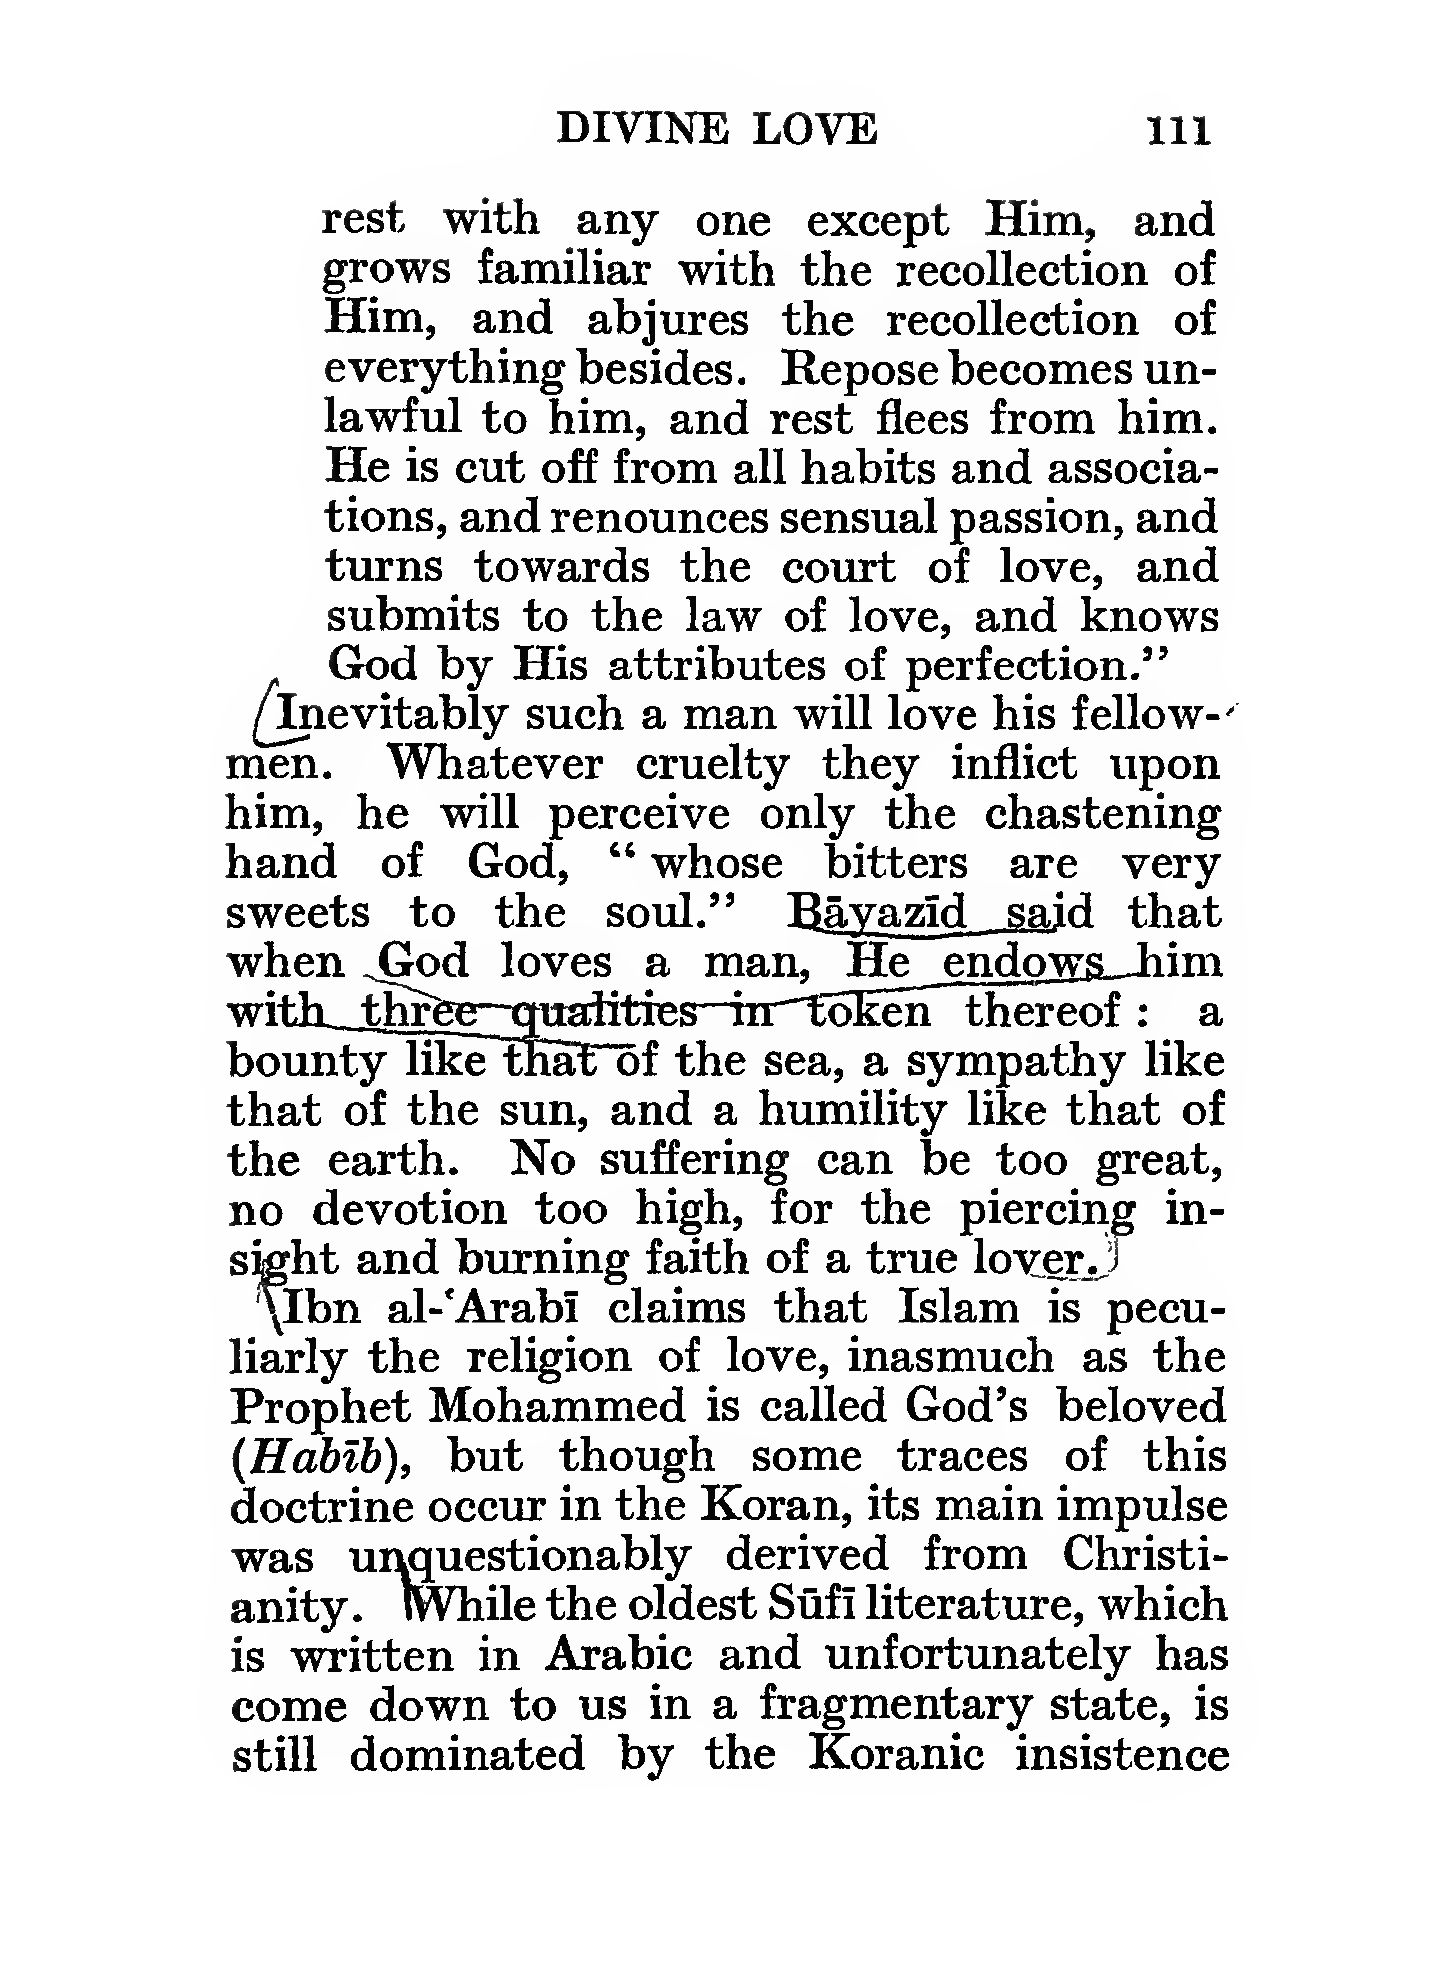 DIVINE LOVE 111
rest with any one except Him, and
grows familiar with the recollection of
Him, and abjures the recollection of
everything besides. Repose becomes un-
lawful to him, and rest flees from him.
He is cut off from all habits and associa-
tions, and renounces sensual passion, and
turns towards the court of love, and
submits to the law of love, and knows
God by His attributes of perfection.”
Inevitably such a man will love his fellow-
men. Whatever cruelty they inflict upon
him, he will perceive only the chastening
hand of God, “ whose bitters are very
sweets to the soul.” Bāyazīd said that
when God loves a man, He endows him
with three qualities in token thereof : a
bounty like that of the sea, a sympathy like
that of the sun, and a humility like that of
the earth. No suffering can be too great,
no devotion too high, for the piercing in-
sight and burning faith of a true lover.
Ibn al-‘Arabī claims that Islam is pecu-
liarly the religion of love, inasmuch as the
Prophet Mohammed is called God’s beloved
(Habīb), but though some traces of this
doctrine occur in the Koran, its main impulse
was unquestionably derived from Christi-
anity. While the oldest Sūfī literature, which
is written in Arabic and unfortunately has
come down to us in a fragmentary state, is
still dominated by the Koranic insistence